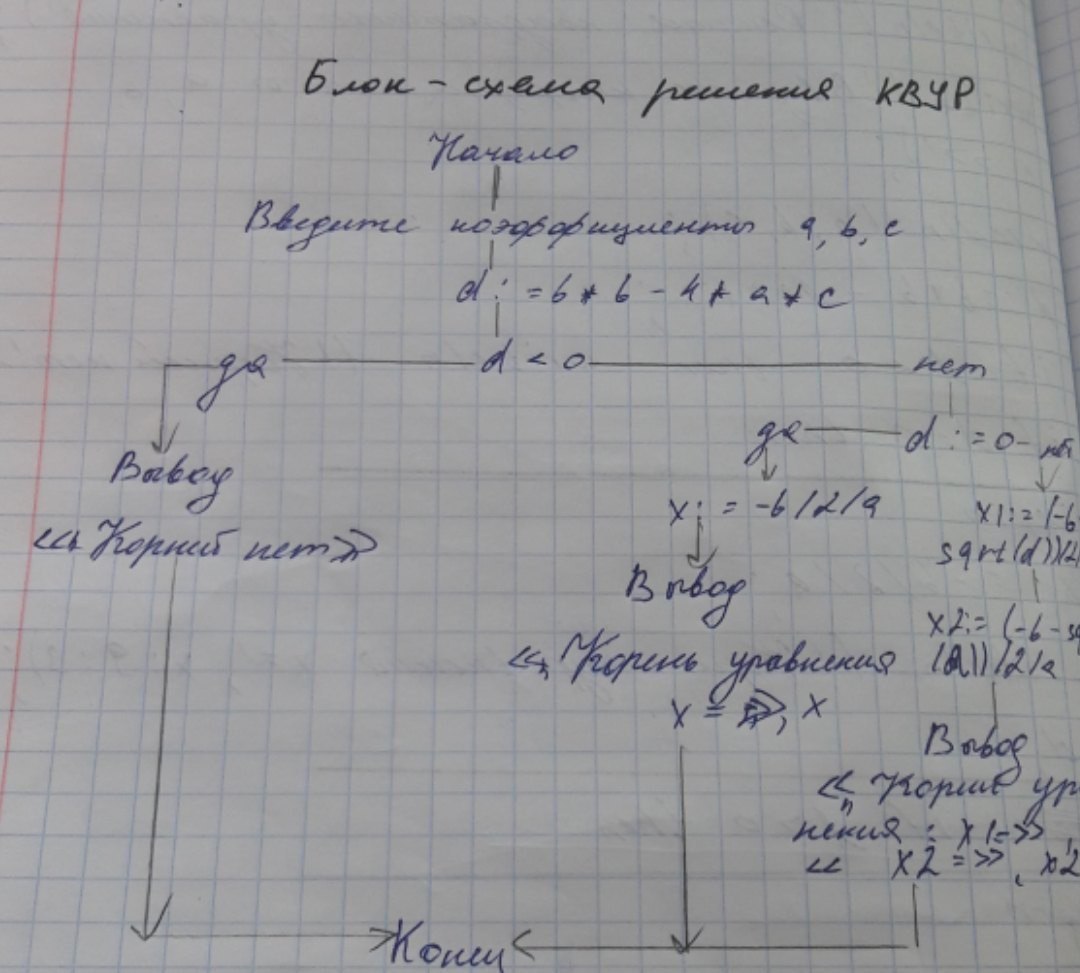 Блок-схема решения КВУР
Начало
Введите коэффициенты a, b, c
d := b * b - 4 * a * c
да d < 0 нет
да d := 0 - нет
Вывод
<<, Корний нет>>
x := -b/2/a
Вывод
<<, Корень уравнения
x = >>, x
x1:= (-b
sqrt(d))(2
x2:= (-b - sq
(d))/2/a
Вывод
<<, Корние ур
нения : x1=>>
<< x2 =>>, x2
Конец